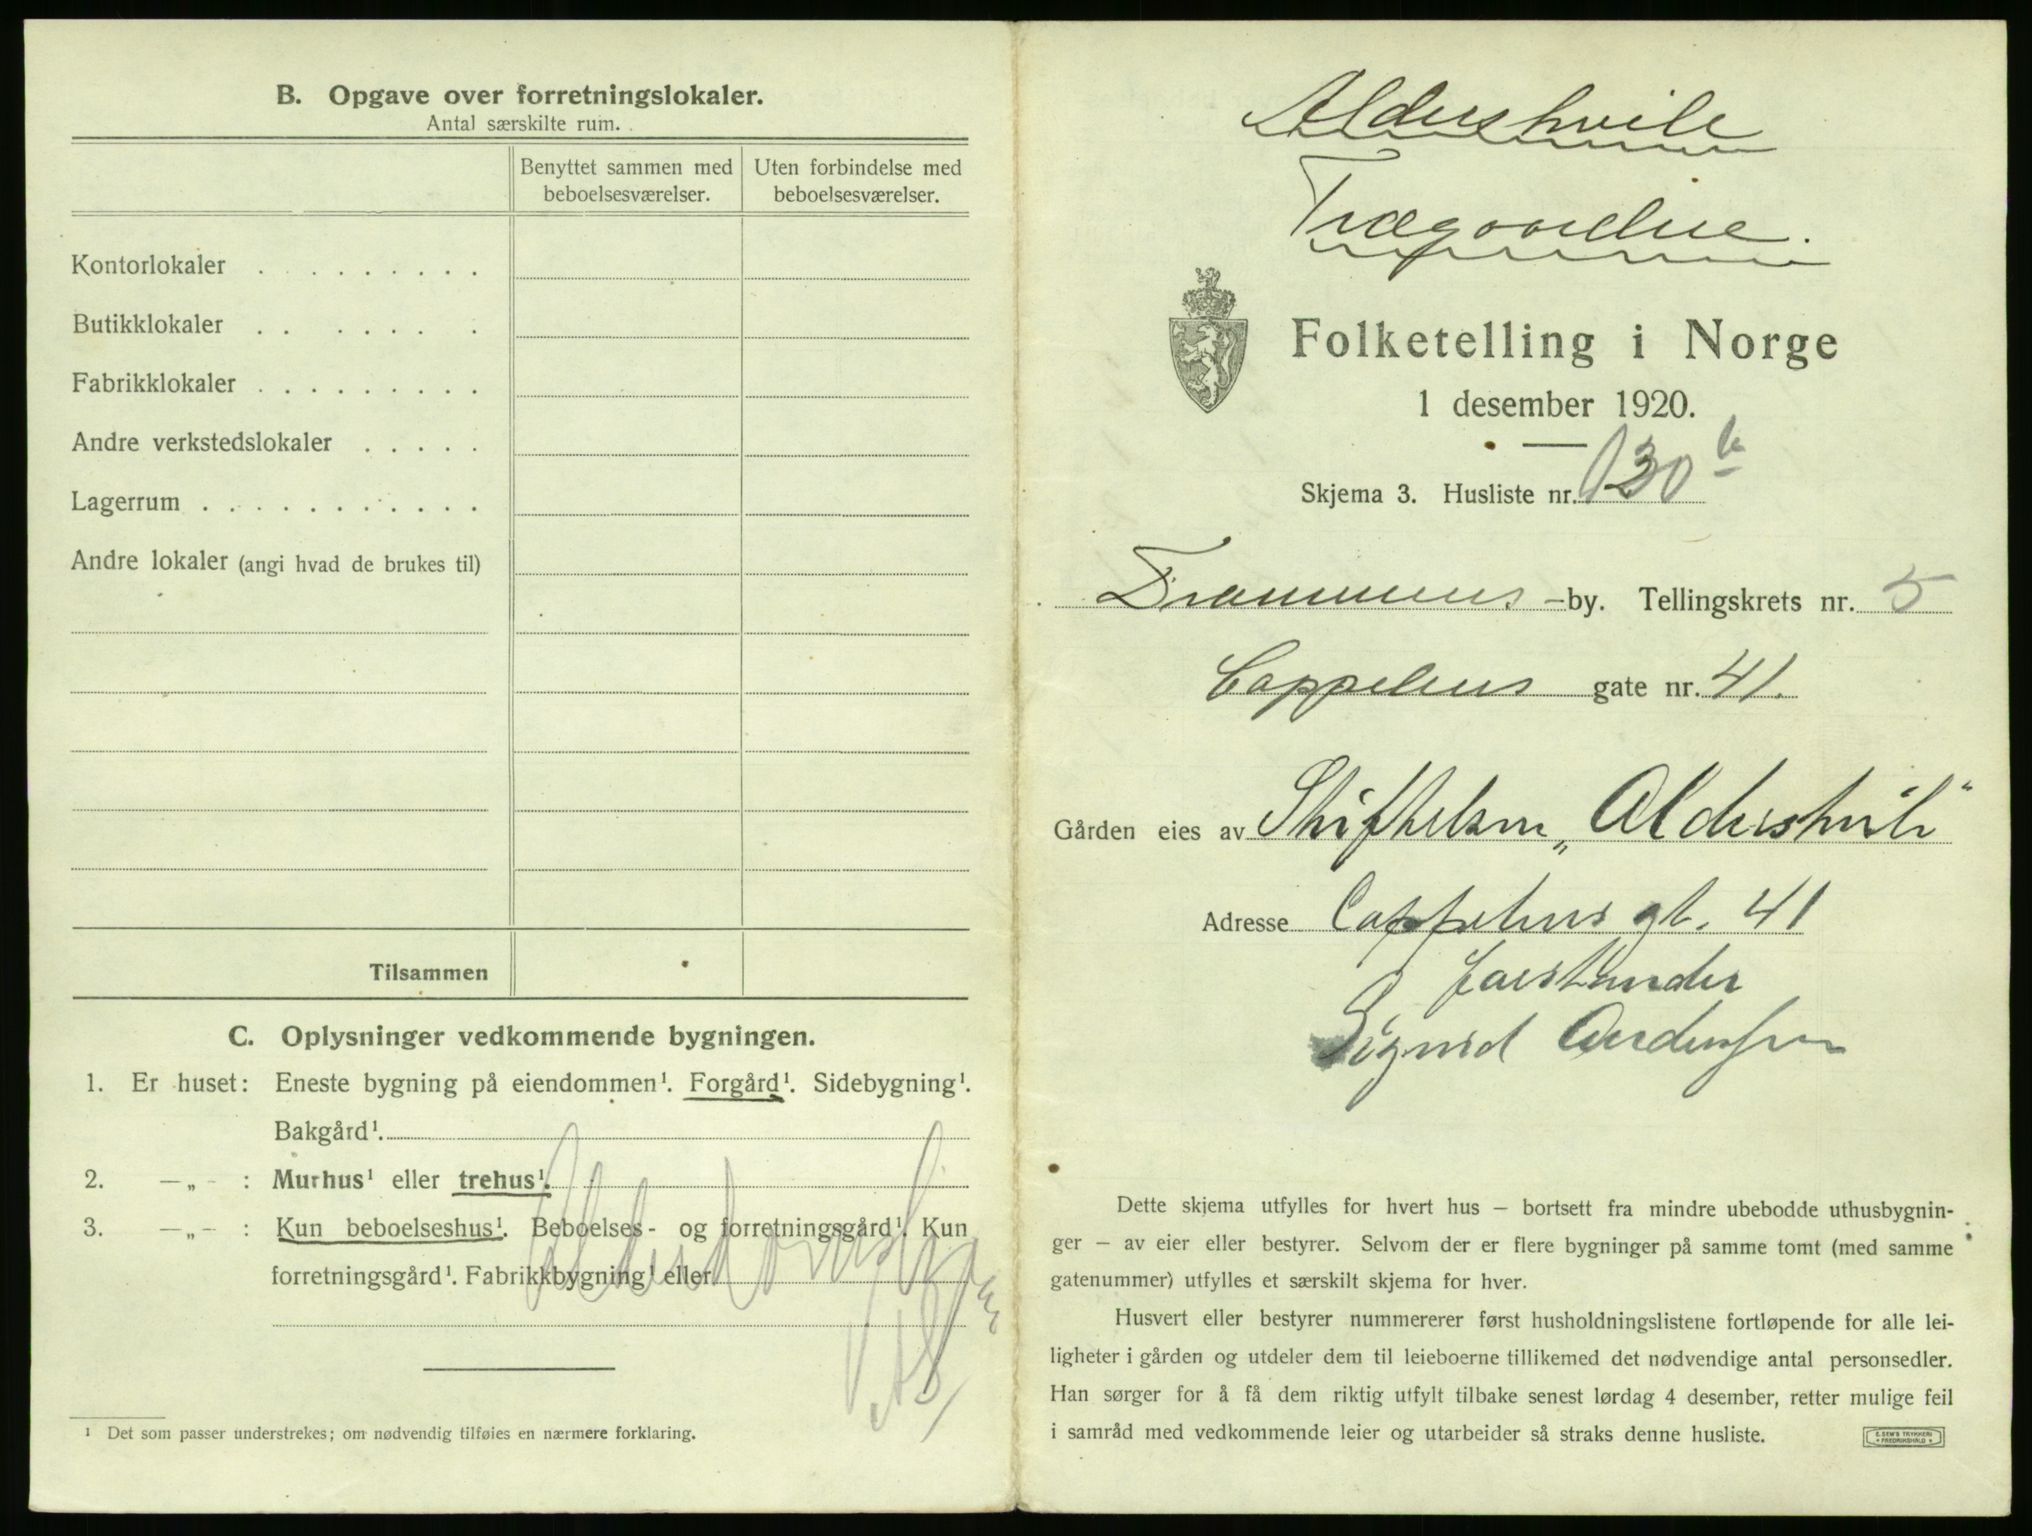 B. Opgave over forretningslokaler.
Antal særskilte rum.
Benyttet sammen med beboelsesværelser.
Uten forbindelse med beboelsesværelser.
Kontorlokaler . . . . . . . . .
Butikklokaler . . . . . . .
Fabrikklokaler . . . . . . . . .
Andre verkstedslokaler . . . . .
Lagerrum . . . . . . . . . . .
Andre lokaler (angi hvad de brukes til)
Tilsammen
C. Oplysninger vedkommende bygningen.
1. Er huset: Eneste bygning på eiendommen¹. Forgård¹. Sidebygning¹.
Bakgård¹.
2. —„— : Murhus¹ eller trehus¹.
3. —„— : Kun beboelseshus¹. Beboelses- og forretningsgård¹. Kun
forretningsgård¹. Fabrikkbygning¹ eller
¹ Det som passer understrekes; om nødvendig tilføies en nærmere forklaring.
Aldershvile
Trægaardene.
Folketelling i Norge
1 desember 1920.
Skjema 3. Husliste nr. 130 b
Drammens -by. Tellingskrets nr. 5
Cappelens gate nr. 41.
Gården eies av Stiftelsen „Aldershvile"
Adresse Cappelens gt. 41
forstander
Sigurd Andersen
Dette skjema utfylles for hvert hus – bortsett fra mindre ubebodde uthusbygnin-
ger – av eier eller bestyrer. Selvom der er flere bygninger på samme tomt (med samme
gatenummer) utfylles et særskilt skjema for hver.
Husvert eller bestyrer nummererer først husholdningslistene fortløpende for alle lei-
ligheter i gården og utdeler dem til leieboerne tillikemed det nødvendige antal personsedler.
Han sørger for å få dem riktig utfylt tilbake senest lørdag 4 desember, retter mulige feil
i samråd med vedkommende leier og utarbeider så straks denne husliste.
E. SEM'S TRYKKERI
FREDRIKSHALD